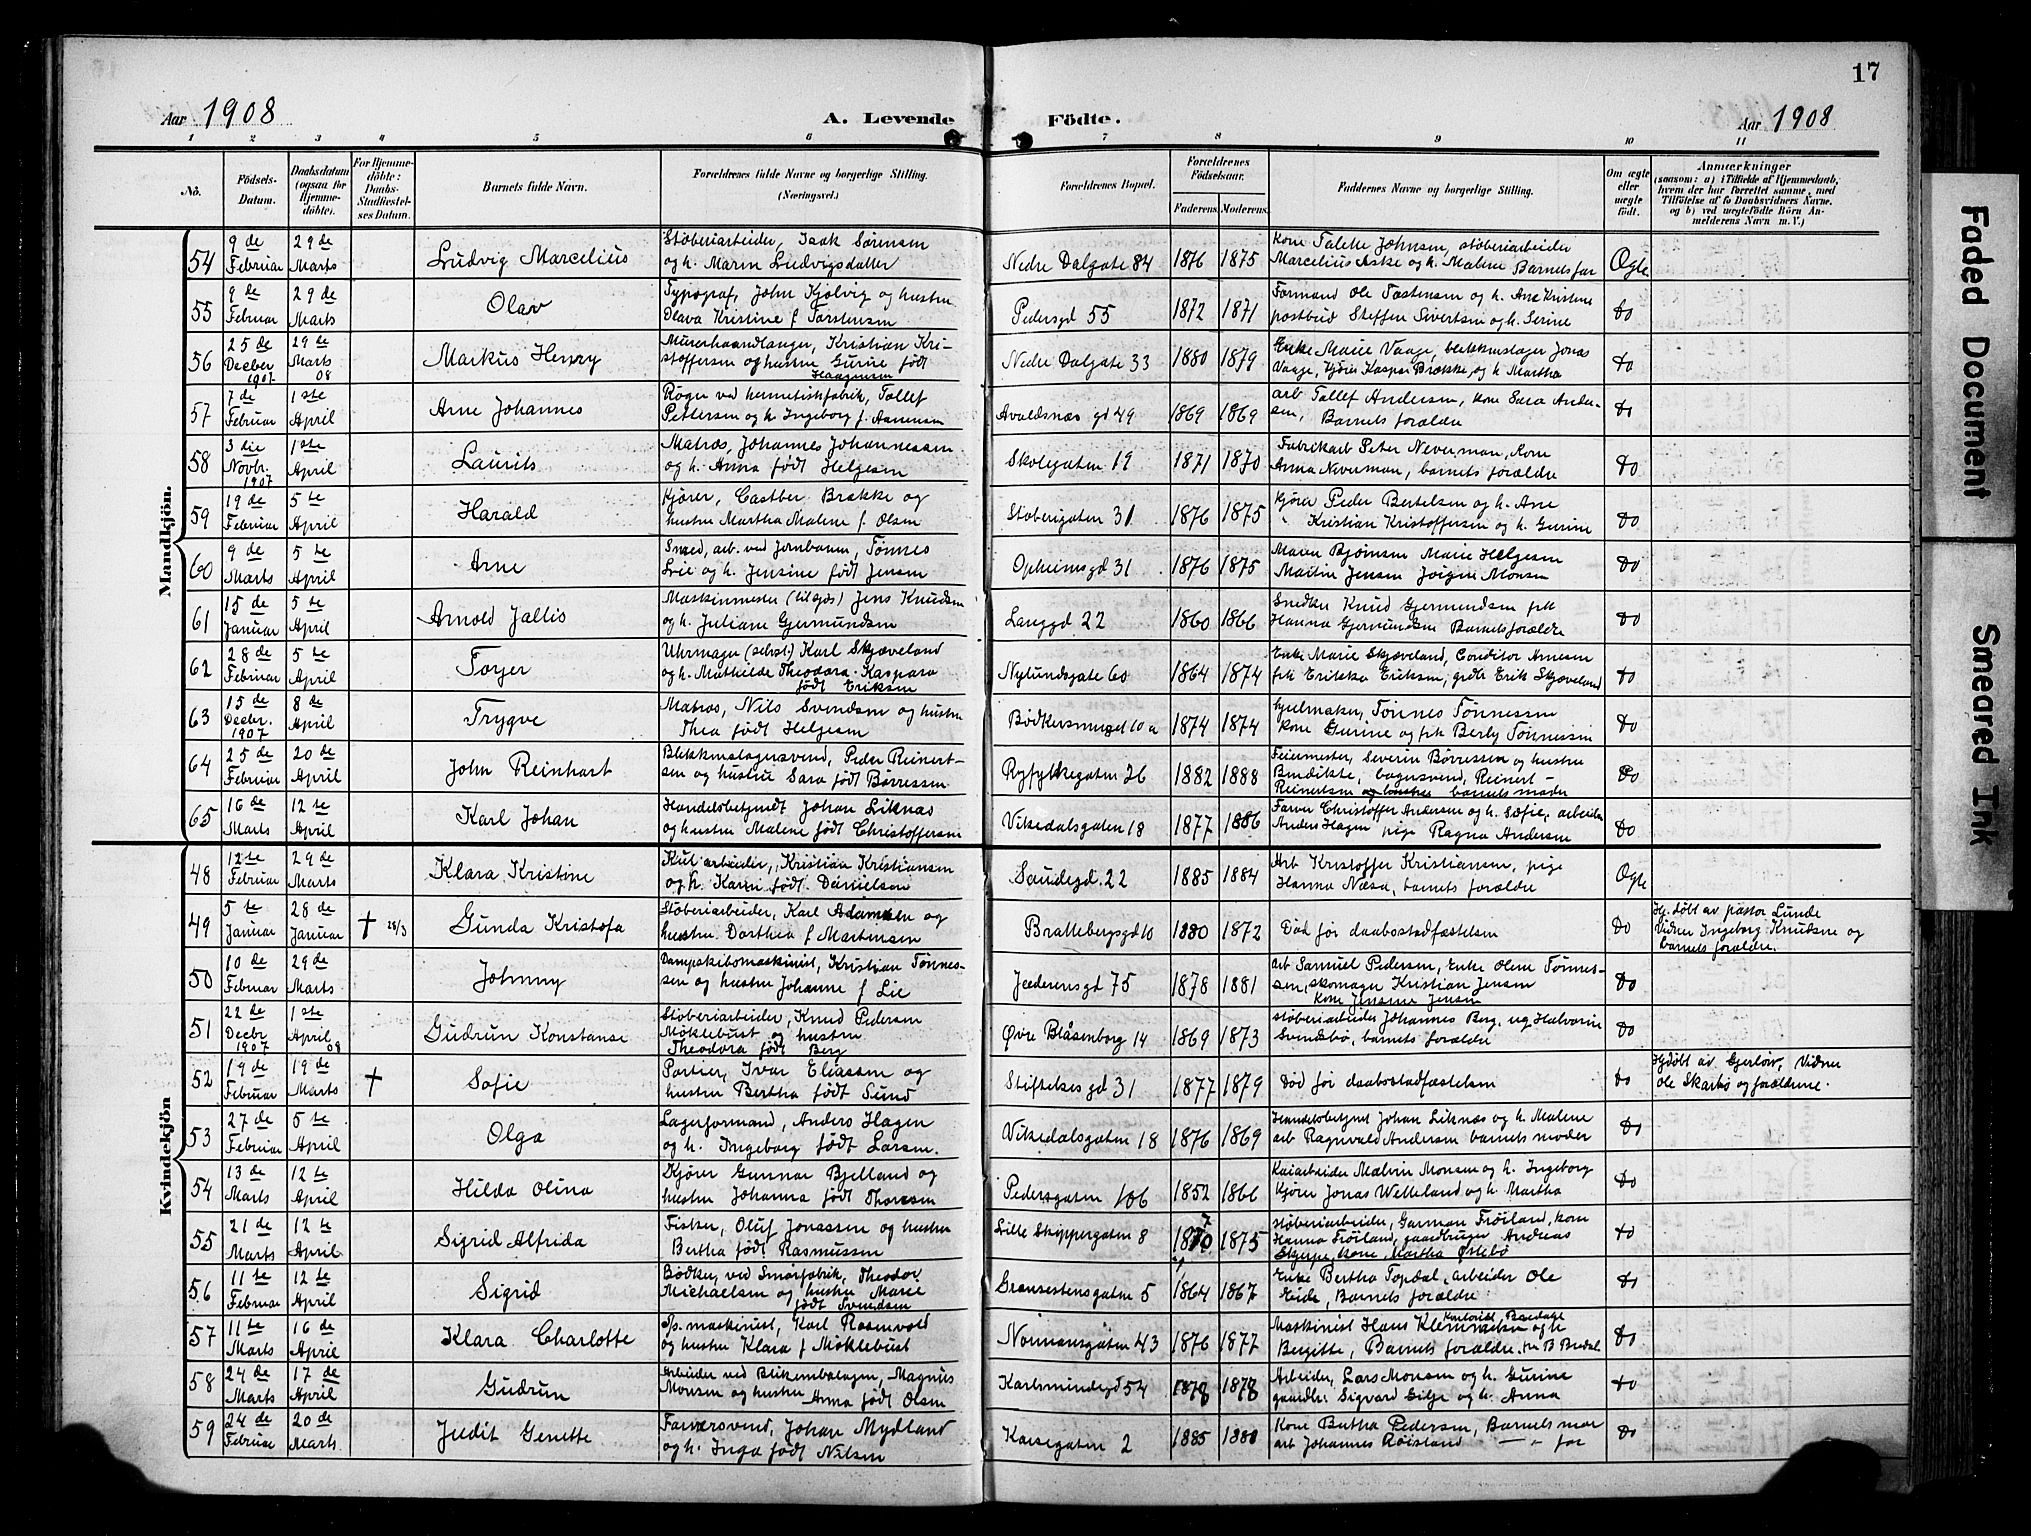 17
Aar 1908 A. Levende Födte. Aar 1908
1 2 3 4 5 6 7 8 9 10 11
No.
Födsels-Datum.
Daabsdatum (ogsaa for Hjemme-döbte).
For Hjemme-döbte: Daabs-Stadfæstel-ses Datum.
Barnets fulde Navn.
Forældrenes fulde Navne og borgerlige Stilling. (Næringsvei.)
Forældrenes Bopæl.
Forældrenes Födselsaar.
Faderens. Moderens.
Faddernes Navne og borgerlige Stilling.
Om ægte eller uægte födt.
Anmærkninger
(saasom: a) i Tilfælde af Hjemmedaab, hvem der har forrettet samme, med Tilföielse af to Daabsvidners Navne. og b) ved uægtefödte Börn An-melderens Navn m. V.)
Mandkjön.
54 9de Februar 29de Marts Ludvig Marcelius Støberiarbeider, Isak Sørensen og h. Maren Ludvigsdatter Nedre Dalgate 84 1876 1875 Kone Talette Johnsen, støberiarbeider Marcelius Aske og h. Malene Barnets far Ægte
55 9de Februar 29de Marts Olav Typograf, John Kjølvig og hustru Olava Kristine f Torstensen Pedersgd 55 1872 1871 Formand Ole Tostensen og h. Ane Kristine postbud Steffen Sivertsen og h. Serine do
56 25de Decber 1907 29de Marts 08 Markus Henry Murerhaandlanger, Kristian Kri-stoffersen og hustru Gurine født Haagensen Nedre Dalgate 33 1880 1879 Enke Marie Vaage, blekkenslager Jonas Vaage, Kjører Kasper Brække, og h. Martha do
57 7de Februar 1ste April Arne Johannes Røger ved hermetikfabrik, Tollef Pettersen og h Ingeborg f. Aanensen Avaldsnæs gd 49 1869 1869 arb Tollef Andersen, kone Sara Ander-sen, Barnets forældre do
58 3die Novbr. 1907 1ste April Laurits Matros, Johannes Johannessen og h. Anna født Helgesen Skolegaten 19 1871 1870 Fabrikarb Peter Neverman, kone Anna Neverman, barnets forældre do
59 19de Februar 5te April Harald Kjører, Castber Brække og hustru Martha Malene f. Olsen Støberigaten 31 1876 1875 Kjører Peder Bertelsen og h. Ane " Kristian Kristoffersen og h. Gurine do
60 9de Marts 5te April Arne Smed, arb. ved Jernbanen, Tønnes Lie og h. Jensine født Jensen Opheimsgd 31 1876 1875 Maren Bjørnsen Marie Helgesen Martin Jensen Jørgine Monsen do
61 15de Januar 5te April Arnold Jallis Maskinmester (tilsjøs) Jens Knudsen og h. Juliane Gjermundsen Langgd 22 1860 1866 Snedker Knud Gjermundsen frk Hanna Gjermundsen Barnets forældre do
62 28de Februar 5te April Torger Uhrmager (selvst.) Karl Skjæveland og h. Mathilde Theodora Kaspara født Eriksen Nylundsgate 60 1864 1874 Enke Marie Skjæveland, Conditor Arnesen frk Erikka Eriksen, grdbr Erik Skjæveland do
63 15de Decbr. 1907 8de April Trygve Matros, Nils Svendsen og hustru Thea født Helgesen Bødkersmuget 10 a 1874 1874 hjulmaker, Tønnes Tønnessen kone Gurine og frk Berly Tønnessen do
64 25de Februar 20de April John Reinhart Blekkenslagersvend, Peder Reinert-sen og hustru Sara født Børressen Ryfylkegaten 26 1882 1888 Feiermester, Severin Børressen og hustru Benedikte, bagersvend, Reinert Reinertsen og hustru barnets moder do
65 16de Marts 12te April Karl Johan Handelsbetjendt Johan Liknæs og hustru Malene født Christoffersen Vikedalsgaten 18 1877 1886 Farver Christoffer Andersen og h. Sofie, arbeider Anders Hagen pige Ragna Andersen do
Kvindekjön
48 12te Februar 29de Marts Klara Kristine Kularbeider, Kristian Kristiansen og h. Karen født Danielsen Saudegd. 22 1885 1884 Arb Kristoffer Kristiansen, pige Hanna Næsa, barnets forældre Ægte
49 5te Januar 28de Januar † 28/3 Gunda Kristofa Støberiarbeider, Karl Adamsen og hustru Dorthea f Martinsen Brattebergsgd 10 1880 1872 Død før daabsstadfæstelsen do Hj. døbt av pastor Lunde Vidner Ingeborg Knudsen og barnets forældre.
50 10de Februar 29de Marts Johnny Dampskibsmaskinist, Kristian Tønnes-sen og hustru Johanne f Lie Jæderensgd 75 1878 1881 arb Samuel Pedersen, Enke Olene Tønnes-sen, skomager Kristian Jensen kone Jensine Jensen do
51 22de Decbr 1907 1ste April 08 Gudrun Konstanse Støberiarbeider, Knud Pedersen Møklebust og hustru Theodora født Berg Øvre Blåsenborg 14 1869 1873 støberiarbeider Johannes Berg, ug Halvorine Svendsbø, barnets forældre do
52 19de Februar 19de Marts † Sofie Portier, Ivar Eliassen og hustru Bertha født Sund Stiftelsesgd 31 1877 1879 Død før daabsstadfæstelsen do Hjdøbt av Gjerløw, Vidner Ole Skarbø og forældrene.
53 27de Februar 5te April Olga Lagerformand, Anders Hagen og h. Ingeborg født Larsen. Vikedalsgaten 18 1876 1869 Handelsbetjent Johan Liknæs og h. Malene arb Ragnvald Andersen barnets moder do
54 13de Marts 12te April Hilda Olina Kjører Gunnar Bjelland og hustru Johanna født Thoresen Pedersgaten 106 1852 1866 Kaiarbeider Malvin Monsen og h. Ingeborg Kjører Jonas Welleland og h. Martha do
55 21de Marts 12te April Sigrid Alfrida Fisker, Oluf Jonassen og hustru Bertha født Rasmussen Lille Skippergaten 8 1870 1875 støberiarbeider, Garman Frøiland, kone Hanna Frøiland, gaardbruger Andreas kone, Martha Østebø do
56 11te Februar 12te April Sigrid Bødker, ved Smørfabrik, Theodor Michaelsen og hustru Marie født Svendsen Grønsestensgaten 5 1864 1867 Enke Bertha Topdal, arbeider Ole Eide, Barnets forældre do
57 11te Marts 16de April Klara Charlotte Sp. maskinist, Karl Rosenvold og hustru Klara f Møklebust Normansgaten 43 1876 1877 Maskinist Hans Klemmetsen og h Birgitte, Barnets forældre do
58 24de Marts 17de April Gudrun Arbeider ved Blikemballagen, Magnus Monsen og hustru Anna født Olsen Karlsmindegd 54 1878 1878 Arbeider, Lars Monsen og h. Gurine gaardbr. Sigvard Gilje og h. Anna do
59 24de Februar 20de Marts Judit Genette Farversvend, Johan Mydland og h. Inga født Nilsen Karsegaten 2 1885 1880 Kone Bertha Pedersen, Barnets mor arb Johannes Røisland — " — far do
Faded Document
Smeared Ink